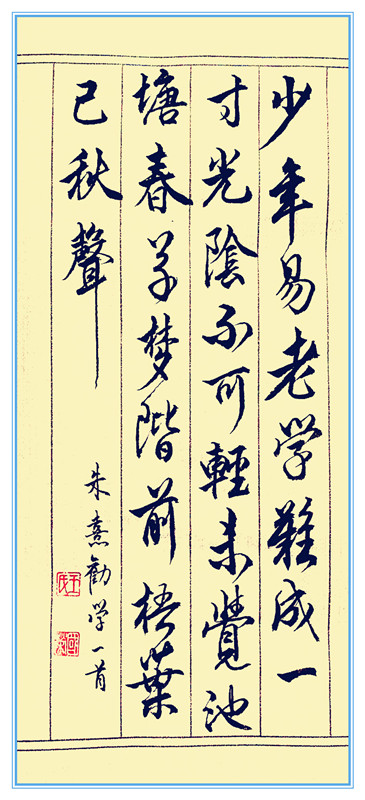 少年易老学難成一
寸光陰不可輕未覺池
塘春草梦階前梧葉
已秋聲
朱熹勸学一首